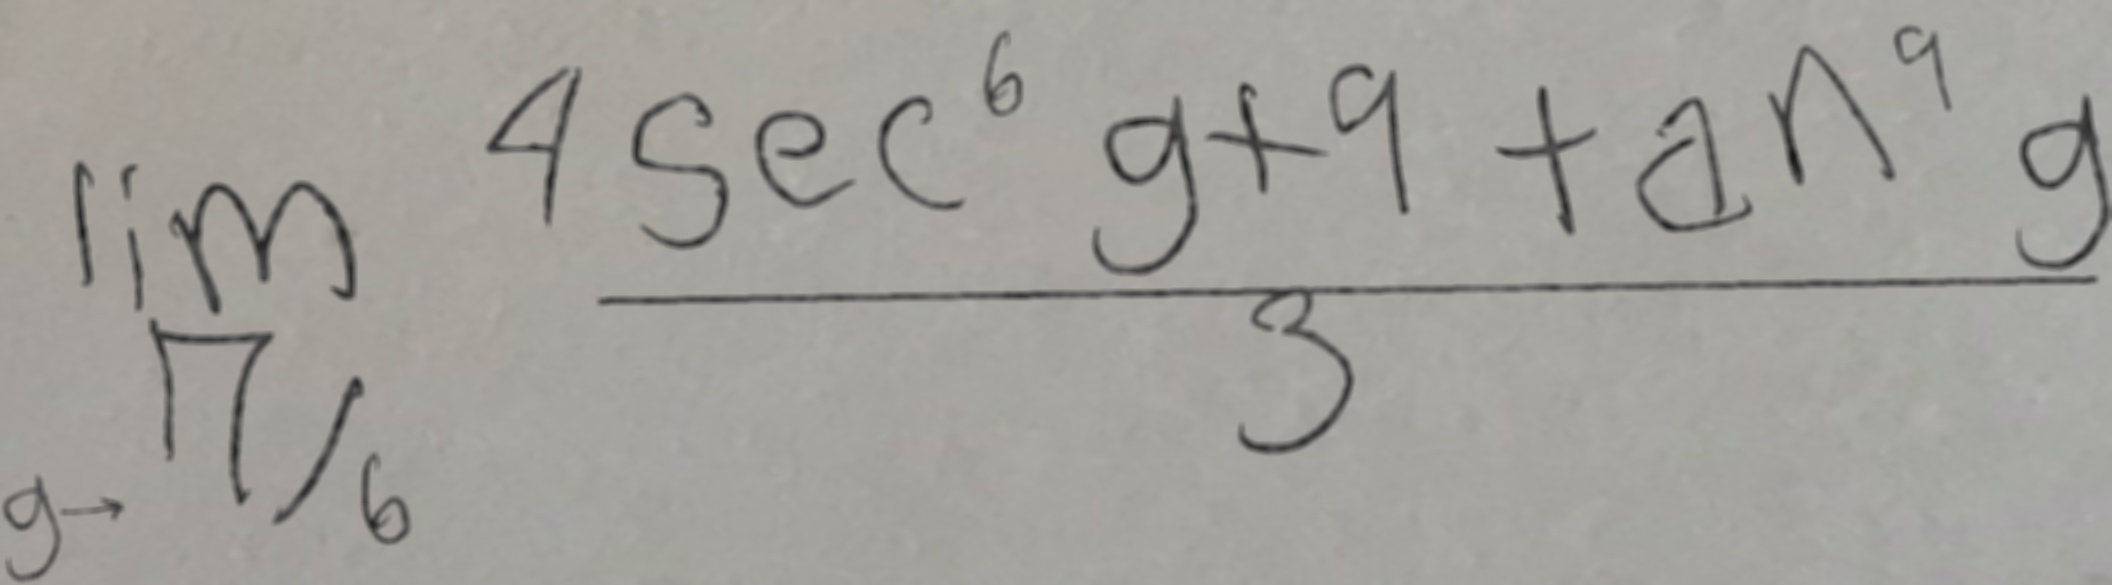 lim g→π/6 (4 sec⁶ g + 9 tan⁹ g)/3